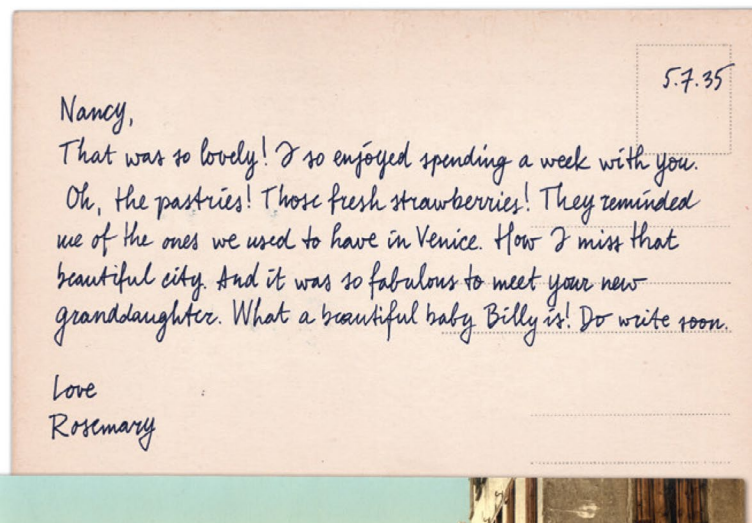 5.7.35
Nancy,
That was so lovely! I so enjoyed spending a week with you.
Oh, the pastries! Those fresh strawberries! They reminded
me of the ones we used to have in Venice. How I miss that
beautiful city. And it was so fabulous to meet your new
granddaughter. What a beautiful baby Billy is! Do write soon.
Love
Rosemary